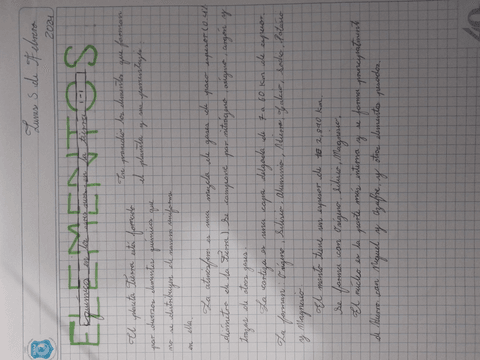 Lunes 5 de Febrero
2021
ELEMENTOS
(química en la
tierra
El planeta Tierra está formado
por diversos elementos químicos que
no se distribuyen de manera uniforme
en ella.
La posición los elementos que forman
el planeta y su porcentaje.
La atmósfera es una mezcla de gases de
diámetro de la Tierra) Se compone por nitrógeno, oxígeno, argón, y
trazas de otros gases.
La corteza es una capa delgada de 7 a 60 km de espesor.
La forman Oxígeno, Silicio, Aluminio, Hierro, Calcio, Sodio, Potasio
y Magnesio
El manto tiene un espesor de 2.890 km.
Se forma con Oxígeno, Silicio, Magnesio.
El núcleo es la parte más interna y se forma principalmente
de hierro con Níquel y Azufre, y otros elementos pesados.